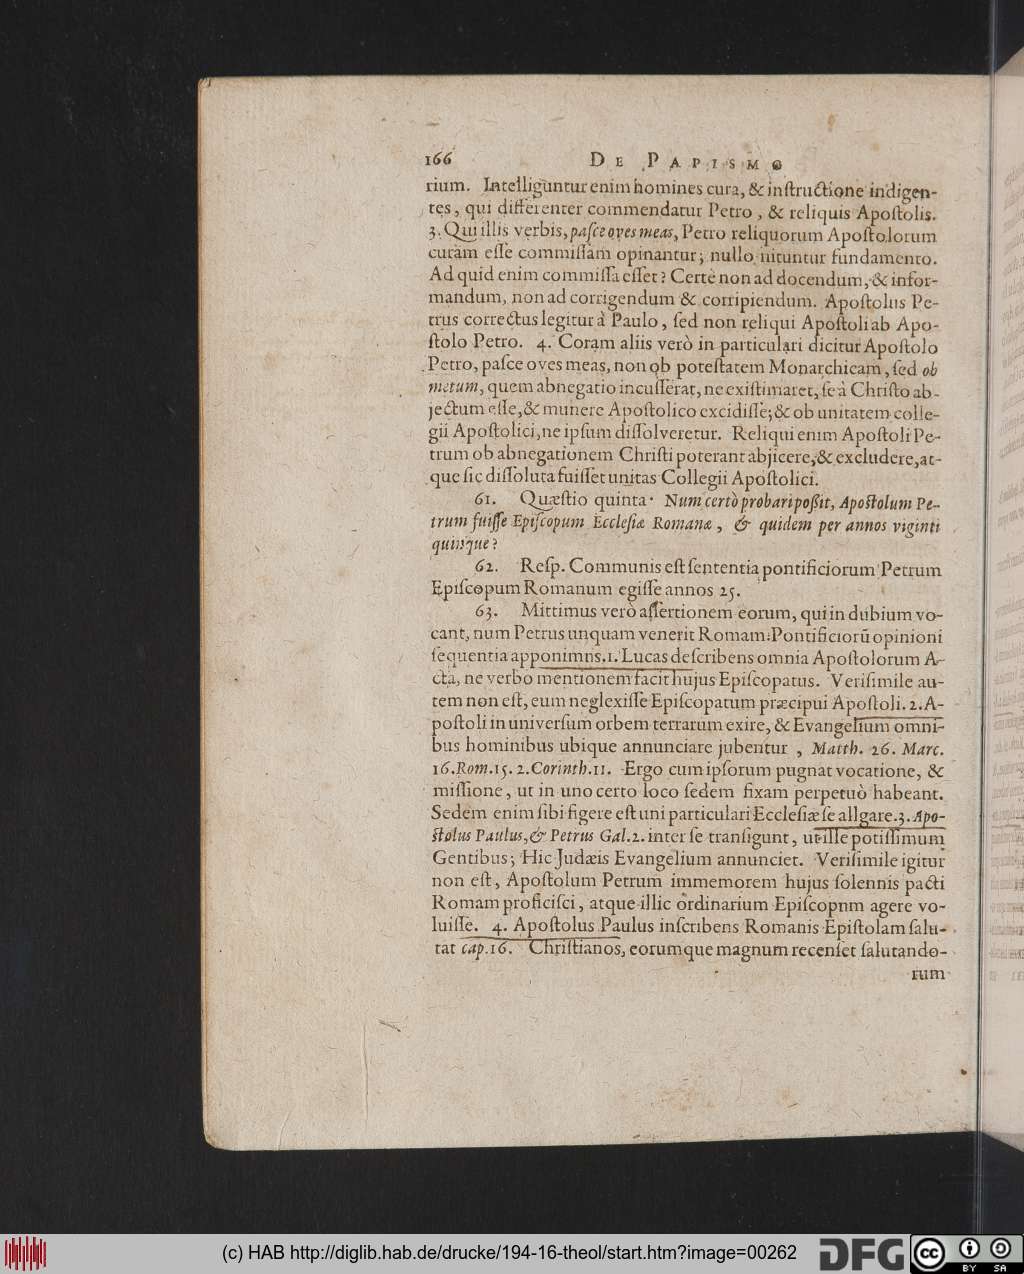 166 DE PAPISMO
rium. Intelliguntur enim homines cura, & inſtructione indigen-
tes, qui differenter commendatur Petro, & reliquis Apoſtolis.
3. Qui illis verbis, paſce oves meas, Petro reliquorum Apoſtolorum
curam eſſe commiſſam opinantur; nullo nituntur fundamento.
Ad quid enim commiſſa eſſet? Certè non ad docendum, & infor-
mandum, non ad corrigendum & corripiendum. Apoſtolus Pe-
trus correctus legitur à Paulo, ſed non reliqui Apoſtoli ab Apo-
ſtolo Petro. 4. Coram aliis verò in particulari dicitur Apoſtolo
Petro, paſce oves meas, non ob poteſtatem Monarchicam, ſed ob
metum, quem abnegatio incuſſerat, ne exiſtimaret, ſe à Chriſto ab-
jectum eſſe, & munere Apoſtolico excidiſſe; & ob unitatem colle-
gii Apoſtolici, ne ipſum diſſolveretur. Reliqui enim Apoſtoli Pe-
trum ob abnegationem Chriſti poterant abjicere, & excludere, at-
que ſic diſſoluta fuiſſet unitas Collegii Apoſtolici.
61. Quæſtio quinta. Num certò probari poßit, Apoſtolum Pe-
trum fuiſſe Epiſcopum Eccleſiæ Romanæ, & quidem per annos viginti
quinque?
62. Reſp. Communis eſt ſententia pontificiorum Petrum
Epiſcopum Romanum egiſſe annos 25.
63. Mittimus verò aſſertionem eorum, qui in dubium vo-
cant, num Petrus unquam venerit Romam: Pontificiorū opinioni
ſequentia apponimus. 1. Lucas deſcribens omnia Apoſtolorum A-
cta, ne verbo mentionem facit hujus Epiſcopatus. Veriſimile au-
tem non eſt, eum neglexiſſe Epiſcopatum præcipui Apoſtoli. 2. A-
poſtoli in univerſum orbem terrarum exire, & Evangelium omni-
bus hominibus ubique annunciare jubentur, Matth. 26. Marc.
16. Rom. 15. 2. Corinth. 11. Ergo cum ipſorum pugnat vocatione, &
miſſione, ut in uno certo loco ſedem fixam perpetuò habeant.
Sedem enim ſibi figere eſt uni particulari Eccleſiæ ſe allgare. 3. Apo-
ſtolus Paulus, & Petrus Gal. 2. inter ſe tranſigunt, ut ille potiſſimum
Gentibus; Hic Judæis Evangelium annunciet. Veriſimile igitur
non eſt, Apoſtolum Petrum immemorem hujus ſolennis pacti
Romam proficiſci, atque illic ordinarium Epiſcopnm agere vo-
luiſſe. 4. Apoſtolus Paulus inſcribens Romanis Epiſtolam ſalu-
tat cap. 16. Chriſtianos, eorumque magnum recenſet ſalutando-
rum
(c) HAB http://diglib.hab.de/drucke/194-16-theol/start.htm?image=00262
DFG cc BY SA